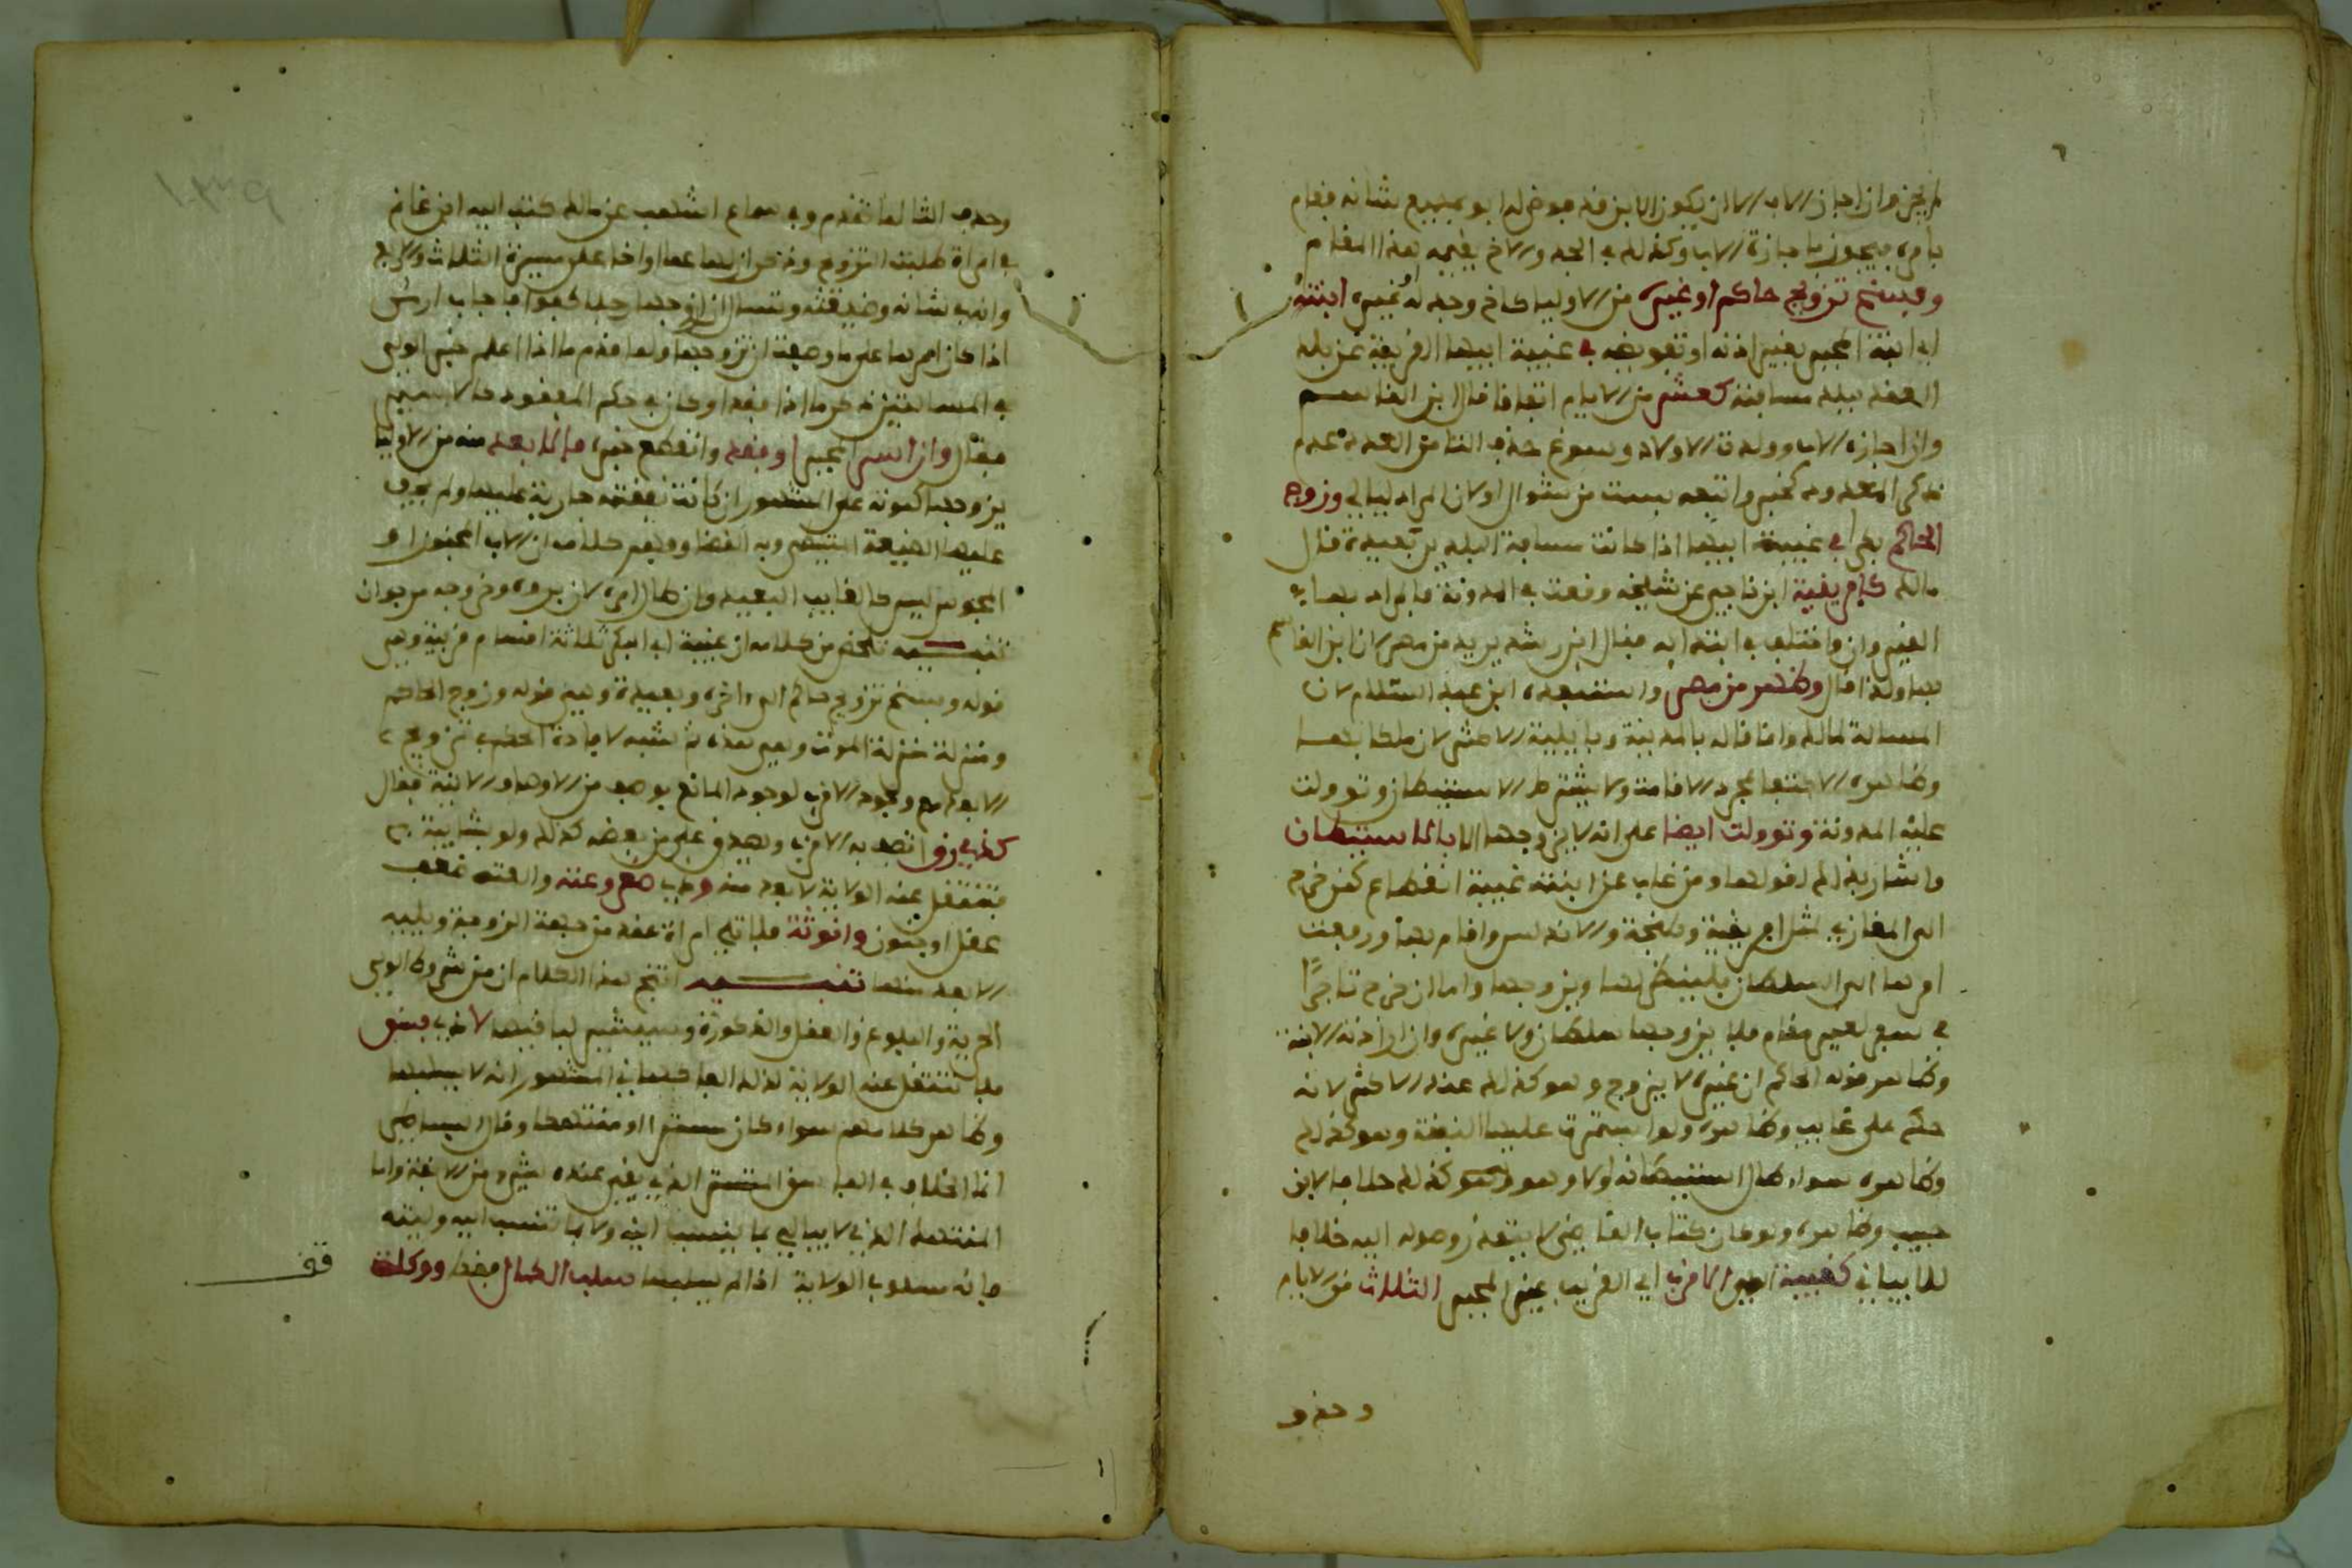 لم يجز وان اجاز الاب الا ان يكون الابن قد فوض له ابوه جميع شانه فقام
بامره فيجوز باجازة الاب وكذلك في الجد والاخ يقيمه هذا المقام
وفسخ تزويج حاكم او غيره من الاولياء كاخ وجد او غيره ابنته
اي ابنة المجبر بغير اذنه او تفويضه في غيبة ابيها القريبة عن بلد
العقد ببلد مسافته كعشر من الايام اتفاقا قال ابن القاسم
وان اجازه الاب وولدت الاولاد وسوغ حذف التا من العدد عدم
ذكر المعدود كخبر واتبعه بست من شوال او ان المراد ليالي وزوج
الحاكم بكرا في غيبة ابيها اذا كانت مسافة البلد بعيدة قال
مالك كافريقية ابن ناجي عن شيخه وقعت في المدونة فالمراد بها
القيروان واختلف في ابتداء فقال ابن رشد يريد من مصر لان ابن القاسم
بها ولذا قال وظهر من مصر واستبعده ابن عبد السلام لان
المسالة لمالك وانما قاله بالمدينة وبابلية الاكثر لان ملكا بها
وظاهره الاكتفا بمجرد الاقامة ولا يشترط الاستيطان وتوولت
عليه المدونة وتوولت ايضا على انه لا يزوجها الا بالاستيطان
واشار بذلك لقولها ومن غاب عن ابنته غيبة انقطاع كمن خرج
الى المغازي لمثل افريقية وطنجة والاندلس واقام بها ورفعت
امرها الى السلطان فلينظر لها ويزوجها واما ان خرج تاجرًا
في سفر لغير مقام فلا يزوجها سلطان ولا غيره وان ارادته الابنة
وظاهر قوله الحاكم ان غيره لا يزوج وهو كذلك عند الاكثر لانه
حكم على غايب وظاهره ولو استمرت عليها النفقة وهو كذلك
وظاهره سواء طال استيطانه اولا وهو كذلك خلافا لابن
حبيب وظاهره ولو كان كتاب القاضي لا يتعذر وصوله اليه خلافا
للابياني كغيبة الولي الاقرب اي القريب غير المجبر الثلاث من الايام
وحذف
وحذف التا لما تقدم وفي سماع اشهب عن مالك كتب اليه ابن غانم
في امراة طلبت التزوج وذكرت ان لها عما او اخا على مسيرة الثلاث والاربع
وانه في شانه وضيقته وتسال ان ازوجها رجلا كفوا فاجاب ارسل
اذا كان امرها على ما وصفت ان تزوجها ولما قدم ما اذا علم خبر الولي
في المسالتين ذكر ما اذا فقد او كان في حكم المفقود كالاسير
فقال وان اسر المجبر او فقد وانقطع خبره فالابعد منه من الاوليا
يزوجها كموته على المشهور ان كانت نفقته جارية عليها ولم يخف
عليها الضيعة المتيطي وبه القضا وفهم كلامه ان الاب المجنون او
المحبوس ليس كالغايب البعيد وان طال امره لان بروه وخروجه مرجوان
تنبيه تلخص من كلامه ان غيبة ابي البكر ثلاثة اقسام قريبة وهي
قوله وفسخ تزويج حاكم الى اخره وبعيدة وهي قوله وزوج الحاكم
ومنزلة منزلة الموت وهي هذه ثم شبه لافادة الحكم في تزويج
الابعد مع وجود الاقرب لوجود المانع بوصف من الاوصاف الاتية فقال
كذي رق اتصف به الاقرب ويصدق على من بعضه كذلك ولو بشايبة
فتنتقل عنه الولاية لابعد منه وذي صغر وعته والعته ضعف
عقل او جنون وانوثة فلا تلي امراة عقد من جهة الزوجة ويليه
الابعد منها تنبيه انتج هذا الكلام ان من شروط الولي
الحرية والبلوغ والعقل والذكورة وسيشير لباقيها لا ذي فسق
فلا تنتقل عنه الولاية لذلك العاكساني المشهور انه لا يسلبها
وظاهر كلامهم سواء كان مستترا او متهتكا وقال البساطي
انما الخلاف في الفاسق المستتر الذي يغير عنده بشيء من الانفة واما
المتهتك الذي لا يبالي بما ينسب اليه ولا بما تنسب اليه وليته
فانه مسلوب الولاية اذا لم يسلبها سلب الكمال فقط ووكلت
قف